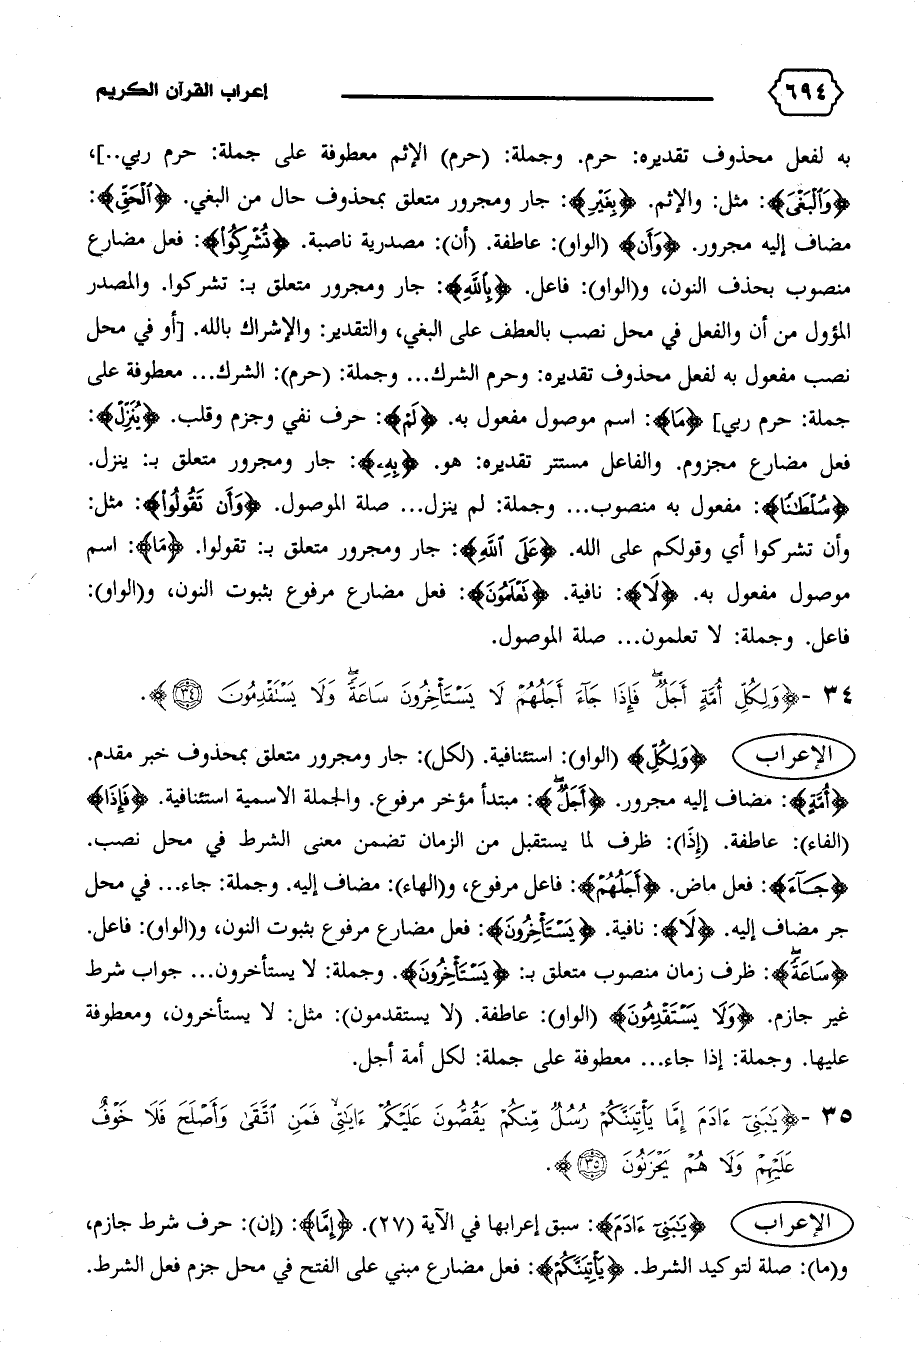 ٦٩٤ إعراب القرآن الكريم
به لفعل محذوف تقديره: حرم. وجملة: (حرم) الإثم معطوفة على جملة: حرم ربي..]،
﴿وَٱلْبَغْىَ﴾: مثل: والإثم. ﴿بِغَيْرِ﴾: جار ومجرور متعلق بمحذوف حال من البغي. ﴿ٱلْحَقِّ﴾:
مضاف إليه مجرور. ﴿وَأَن﴾ (الواو): عاطفة. (أن): مصدرية ناصبة. ﴿تُشْرِكُوا۟﴾: فعل مضارع
منصوب بحذف النون، و(الواو): فاعل. ﴿بِٱللَّهِ﴾: جار ومجرور متعلق بـ: تشركوا. والمصدر
المؤول من أن والفعل في محل نصب بالعطف على البغي، والتقدير: والإشراك بالله. [أو في محل
نصب مفعول به لفعل محذوف تقديره: وحرم الشرك... وجملة: (حرم): الشرك... معطوفة على
جملة: حرم ربي] ﴿مَا﴾: اسم موصول مفعول به. ﴿لَمْ﴾: حرف نفي وجزم وقلب. ﴿يُنَزِّلْ﴾:
فعل مضارع مجزوم. والفاعل مستتر تقديره: هو. ﴿بِهِۦ﴾: جار ومجرور متعلق بـ: ينزل.
﴿سُلْطَـٰنًا﴾: مفعول به منصوب... وجملة: لم ينزل... صلة الموصول. ﴿وَأَن تَقُولُوا۟﴾: مثل:
وأن تشركوا أي وقولكم على الله. ﴿عَلَى ٱللَّهِ﴾: جار ومجرور متعلق بـ: تقولوا. ﴿مَا﴾: اسم
موصول مفعول به. ﴿لَا﴾: نافية. ﴿تَعْلَمُونَ﴾: فعل مضارع مرفوع بثبوت النون، و(الواو):
فاعل. وجملة: لا تعلمون... صلة الموصول.
٣٤ -﴿وَلِكُلِّ أُمَّةٍ أَجَلٌ ۖ فَإِذَا جَآءَ أَجَلُهُمْ لَا يَسْتَأْخِرُونَ سَاعَةً ۖ وَلَا يَسْتَقْدِمُونَ ٣٤﴾.
الإعراب ﴿وَلِكُلِّ﴾ (الواو): استئنافية. (لكل): جار ومجرور متعلق بمحذوف خبر مقدم.
﴿أُمَّةٍ﴾: مضاف إليه مجرور. ﴿أَجَلٌ ۖ﴾: مبتدأ مؤخر مرفوع. والجملة الاسمية استئنافية. ﴿فَإِذَا﴾
(الفاء): عاطفة. (إذَا): ظرف لما يستقبل من الزمان تضمن معنى الشرط في محل نصب.
﴿جَآءَ﴾: فعل ماض. ﴿أَجَلُهُمْ﴾: فاعل مرفوع، و(الهاء): مضاف إليه. وجملة: جاء... في محل
جر مضاف إليه. ﴿لَا﴾: نافية. ﴿يَسْتَأْخِرُونَ﴾: فعل مضارع مرفوع بثبوت النون، و(الواو): فاعل.
﴿سَاعَةً ۖ﴾: ظرف زمان منصوب متعلق بـ: ﴿يَسْتَأْخِرُونَ﴾. وجملة: لا يستأخرون... جواب شرط
غير جازم. ﴿وَلَا يَسْتَقْدِمُونَ﴾ (الواو): عاطفة. (لا يستقدمون): مثل: لا يستأخرون، ومعطوفة
عليها. وجملة: إذا جاء... معطوفة على جملة: لكل أمة أجل.
٣٥ -﴿يَـٰبَنِىٓ ءَادَمَ إِمَّا يَأْتِيَنَّكُمْ رُسُلٌ مِّنكُمْ يَقُصُّونَ عَلَيْكُمْ ءَايَـٰتِى ۙ فَمَنِ ٱتَّقَىٰ وَأَصْلَحَ فَلَا خَوْفٌ
عَلَيْهِمْ وَلَا هُمْ يَحْزَنُونَ ٣٥﴾.
الإعراب ﴿يَـٰبَنِىٓ ءَادَمَ﴾: سبق إعرابها في الآية (٢٧). ﴿إِمَّا﴾: (إن): حرف شرط جازم،
و(ما): صلة لتوكيد الشرط. ﴿يَأْتِيَنَّكُمْ﴾: فعل مضارع مبني على الفتح في محل جزم فعل الشرط.